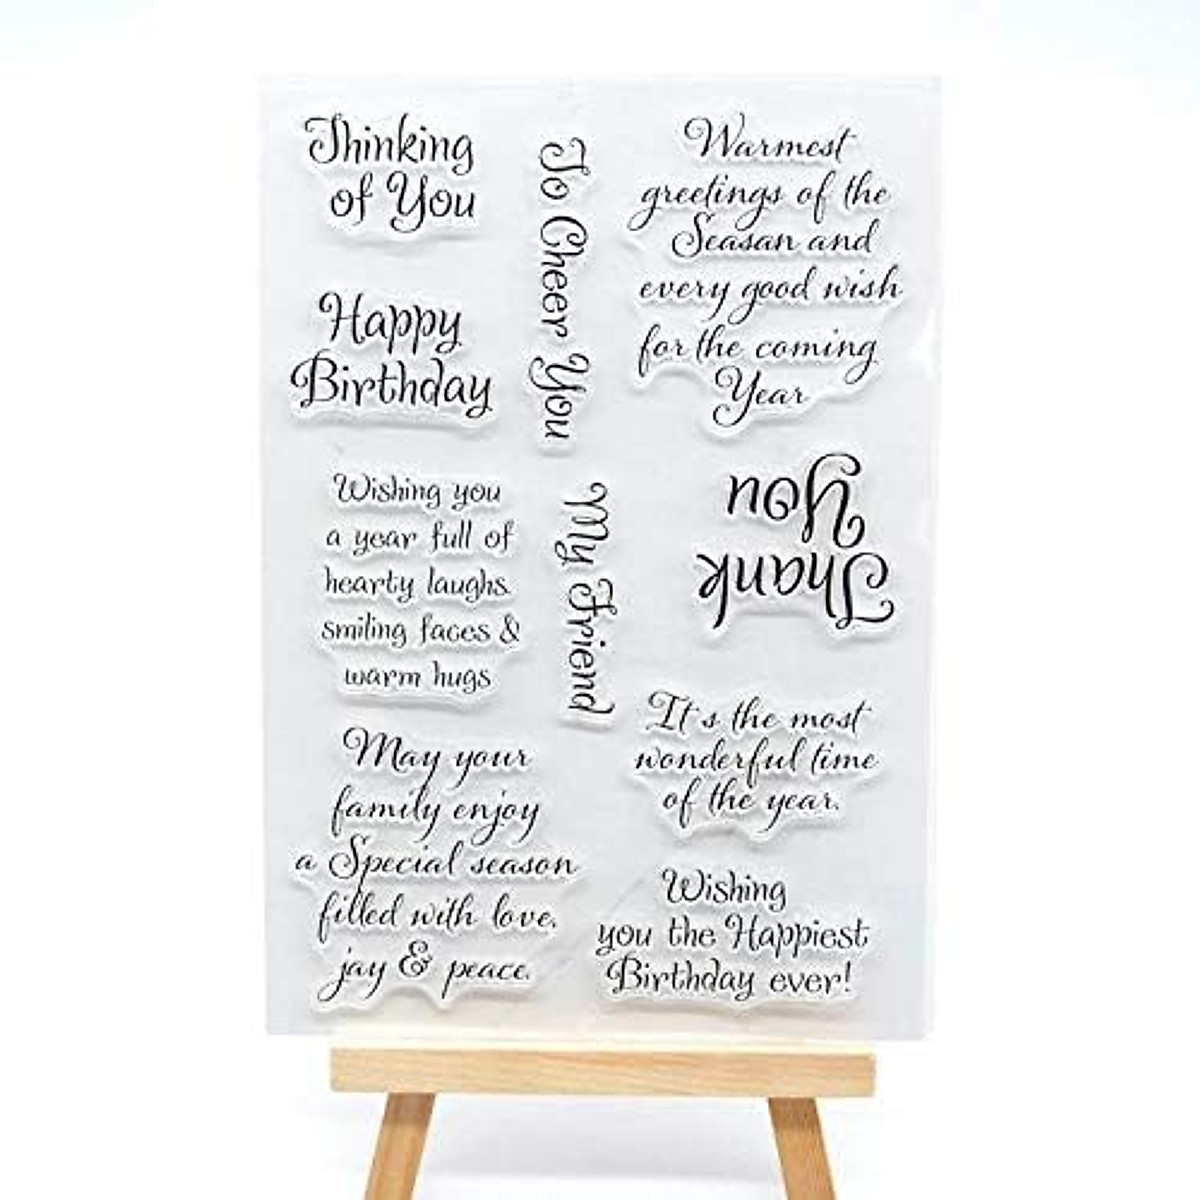 Thinking
of You
Happy
Birthday
Wishing you
a year full of
hearty laughs
smiling faces &
warm hugs
May your
family enjoy
a Special season
filled with love,
jay & peace.
To Cheer You
My Friend
Warmest
greetings of the
Seasan and
every good wish
for the coming
Year
Thank
You
It's the most
wonderful time
of the year.
Wishing
you the Happiest
Birthday ever!